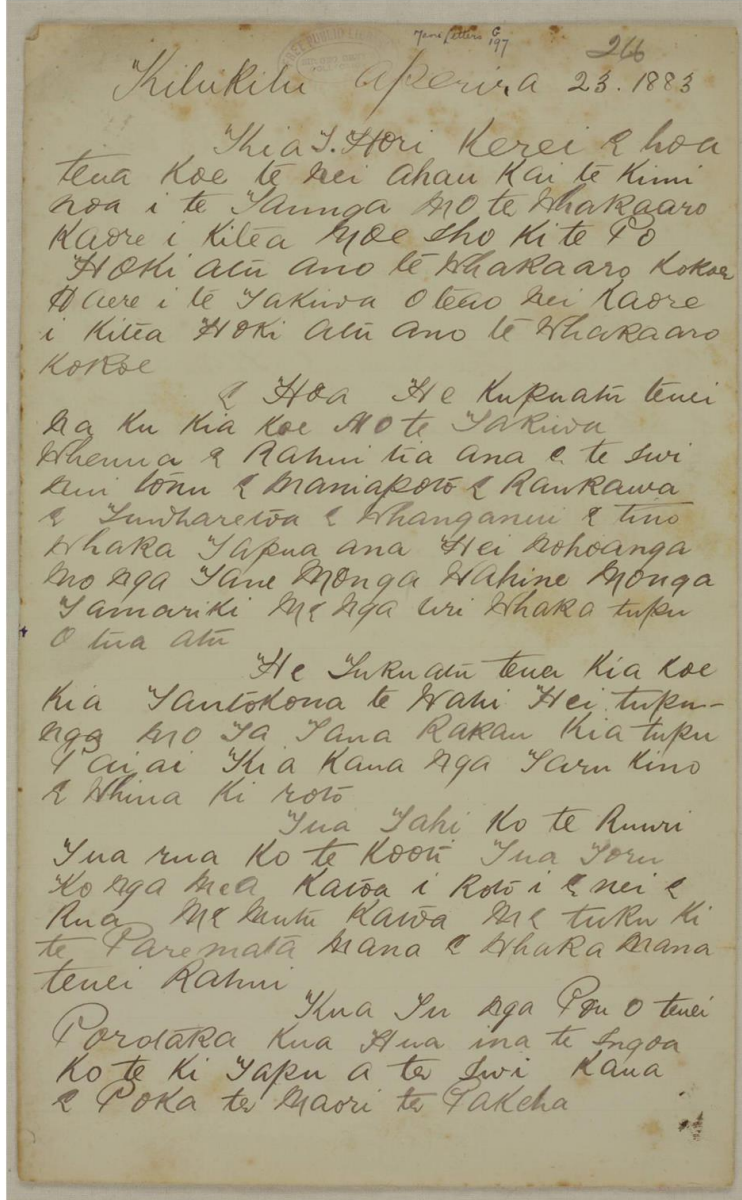 Maori Letters G 197
266
Kihikihi Aperira 23. 1883
Kia T. Hori Kerei E hoa
tena Koe te nei ahau Kai te Kimi
noa i te Taunga Mo te Whakaaro
Kaore i Kitea Moe Iho Ki te Po
Hoki atu ano te Whakaaro Kokoe
Haere i te Takiwa o tenei nei Kaore
i Kitea Hoki atu ano te Whakaaro
Kokoe
E Hoa He Kupuatu tenei
Na Ku Kia Koe Mo te Takiwa
Whenua E Rahui tia ana E te Iwi
Nui tonu E Maniapoto E Raukawa
E Tuwharetoa E Whanganui E tino
Whaka Tapua ana Hei Nohoanga
Mo nga Tane Monga Wahine Monga
Tamariki Me Nga Uri Whaka tupu
O tua atu
He Tukuatu tenei Kia Koe
Kia Tautokona te Wahi Hei tupu-
nga Mo Ta Taua Rakau Kia tupu
Pai ai Kia Kaua Nga Taru Kino
E Whina Ki roto
Tua Tahi Ko te Ruuri
Tua rua Ko te Kooti Tua Toru
Ko Nga Mea Katoa i Roto i E nei E
Rua Me Mutu Katoa Me tuku Ki
te Paremata Mana E Whaka Mana
tenei Rahui
Kua Tu nga Pou O tenei
Poraka Kua Hua ina te Ingoa
Ko te Ki Tapu a te Iwi Kaua
E Poka te Maori te Pakeha